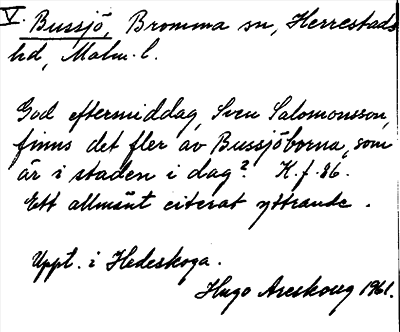 V. Bussjö, Bromma sn, Herrestads
hd, Malm. l.
God eftermiddag, Sven Salomonsson,
finns det fler av Bussjöborna, som
är i staden i dag? K. f. 86.
Ett allmänt citerat yttrande.
Uppt. i Hedeskoga.
Hugo Areskoug 1961.